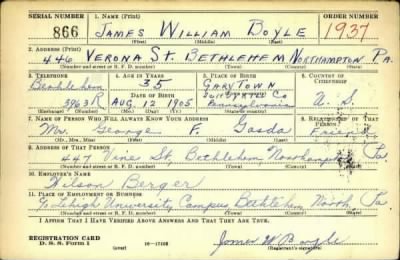 SERIAL NUMBER 1. NAME (Print) ORDER NUMBER
866 JAMES WILLIAM BOYLE 1937
(First) (Middle) (Last)
2. ADDRESS (Print)
446 VERONA ST. BETHLEHEM NORTHAMPTON PA.
(Number and street or R. F. D. number) (Town) (County) (State)
3. TELEPHONE 4. AGE IN YEARS 5. PLACE OF BIRTH 6. COUNTRY OF CITIZENSHIP
Bethlehem 35 GARYTOWN
DATE OF BIRTH (Town or county)
3963R AUG. 12 1905 Pennsylvania U. S.
(Exchange) (Number) (Mo.) (Day) (Yr.) (State or country)
7. NAME OF PERSON WHO WILL ALWAYS KNOW YOUR ADDRESS 8. RELATIONSHIP OF THAT PERSON
Mr. George F. Gosda Friend
(Mr., Mrs., Miss) (First) (Middle) (Last)
9. ADDRESS OF THAT PERSON
447 Vine St, Bethlehem Northampton Pa.
(Number and street or R. F. D. number) (Town) (County) (State)
10. EMPLOYER'S NAME
Wilson Berger
11. PLACE OF EMPLOYMENT OR BUSINESS
c/o Lehigh University Campus Bethlehem North, Pa.
(Number and street or R. F. D. number) (Town) (County) (State)
I AFFIRM THAT I HAVE VERIFIED ABOVE ANSWERS AND THAT THEY ARE TRUE.
REGISTRATION CARD
D. S. S. Form 1 (over) 16-17105 James W Boyle
(Registrant's signature)